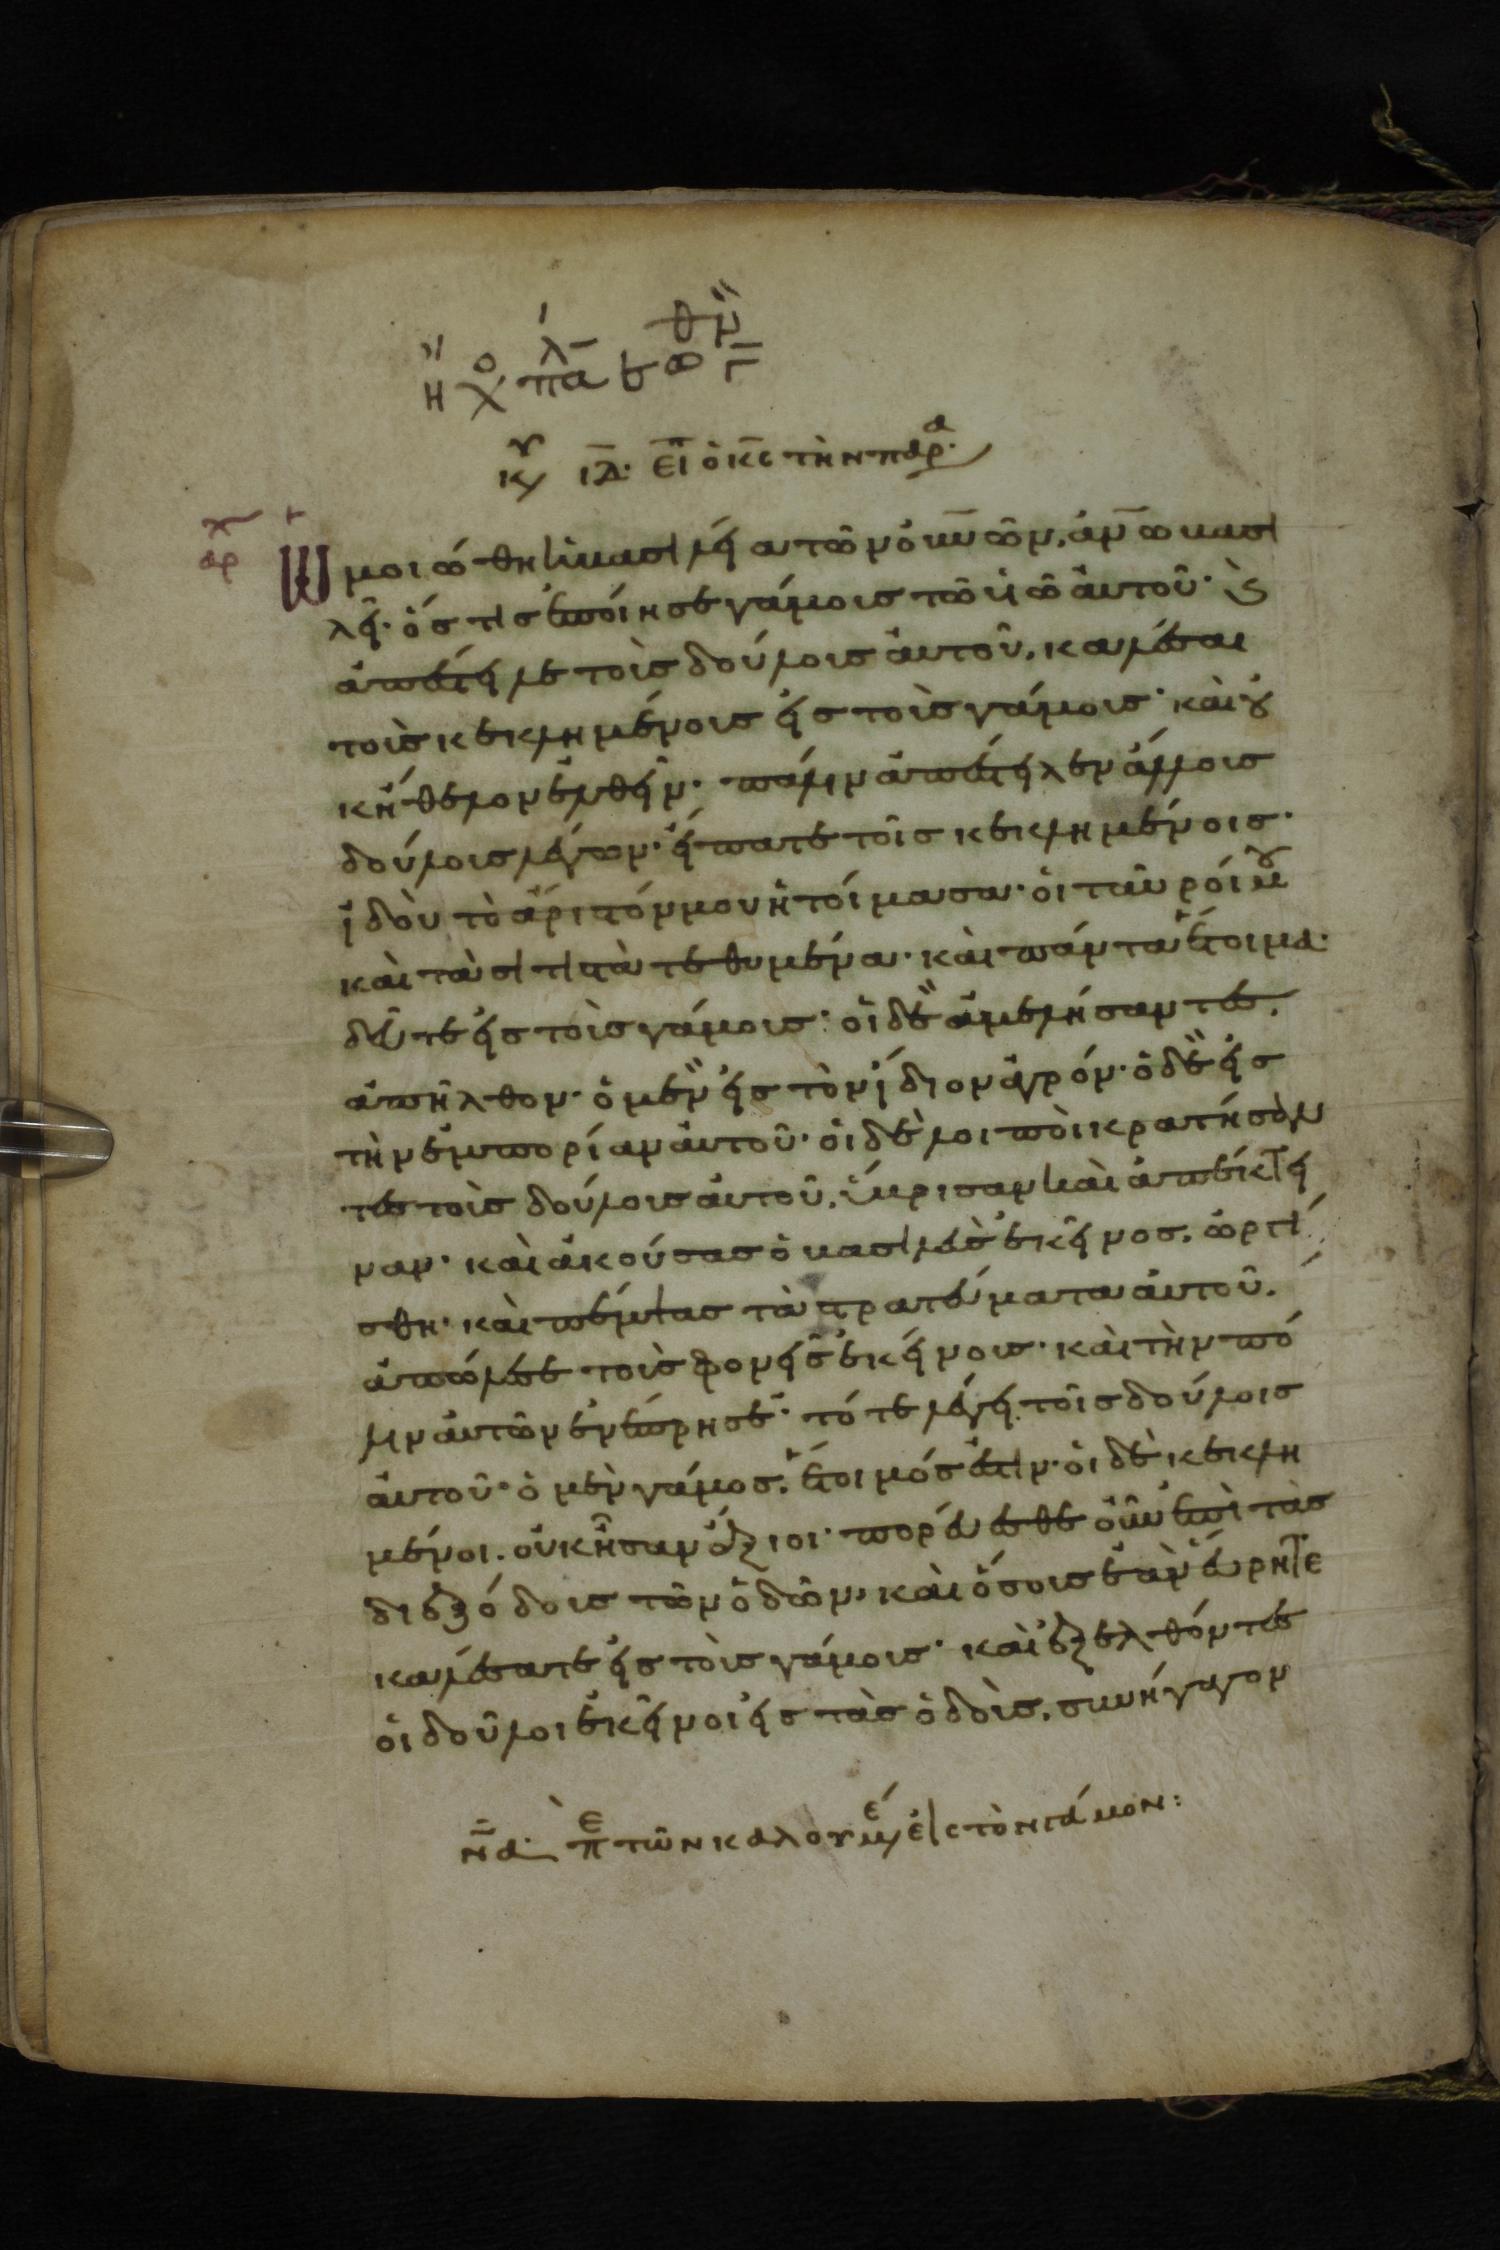 κυ ιδ. ειπ ὁ κς τὴν παρα.
αρχ
Ὡμοιώθη ἡ βασιλεία τῶν οὐνῶν, ἀνω βασι
λεῖ. ὅστις ἐποίησε γάμους τῶ υἱῶ αὐτοῦ. κ
ἀπέστειλε τοὺς δούλους αὐτοῦ, καλέσαι
τοὺς κεκλημένους εἰς τοὺς γάμους. καὶ οὐ
κ ἤθελον ἐλθεῖν. πάλιν ἀπέστειλεν ἄλλους
δούλους λέγων. εἴπατε τοῖς κεκλημένοις.
ἰδοὺ τὸ ἄριστόν μου ἡτοίμασα. οἱ ταῦροί μου
καὶ τὰ σιτιστὰ τεθυμένα. καὶ πάντα ἕτοιμα.
δεῦτε εἰς τοὺς γάμους. οἱ δὲ ἀμελήσαντες,
ἀπῆλθον. ὁ μὲν εἰς τὸν ἴδιον ἀγρόν. ὁ δὲ εἰς
τὴν ἐμπορίαν αὐτοῦ. οἱ δὲ λοιποὶ κρατήσαν
τες τοὺς δούλους αὐτοῦ, ὕβρισαν καὶ ἀπέκτει
ναν. καὶ ἀκούσας ὁ βασιλεὺς ἐκεῖνος, ὠργί
σθη. καὶ πέμψας τὰ στρατεύματα αὐτοῦ,
ἀπώλεσε τοὺς φονεῖς ἐκείνους. καὶ τὴν πό
λιν αὐτῶν ἐνέπρησε. τότε λέγει τοῖς δούλοις
αὐτοῦ. ὁ μὲν γάμος, ἕτοιμός ἐστιν. οἱ δὲ κεκλη
μένοι. οὐκ ἦσαν ἄξιοι. πορεύεσθε οὖν ἐπὶ τὰς
διεξόδους τῶν ὁδῶν, καὶ ὅσους ἐὰν εὕρητε
καλέσατε εἰς τοὺς γάμους. καὶ ἐξελθόντες
οἱ δοῦλοι ἐκεῖνοι εἰς τὰς ὁδοὺς, συνήγαγον
να. πε τῶν καλουμε εἰς τὸν γάμον: